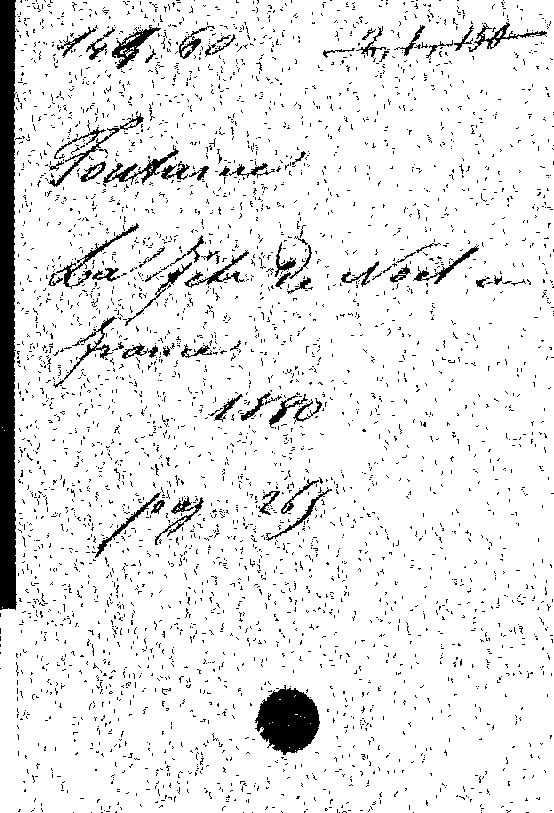 144, 60 2, 1, 150
Fontaine
La fête de Noël en
France
1880
pag. 265